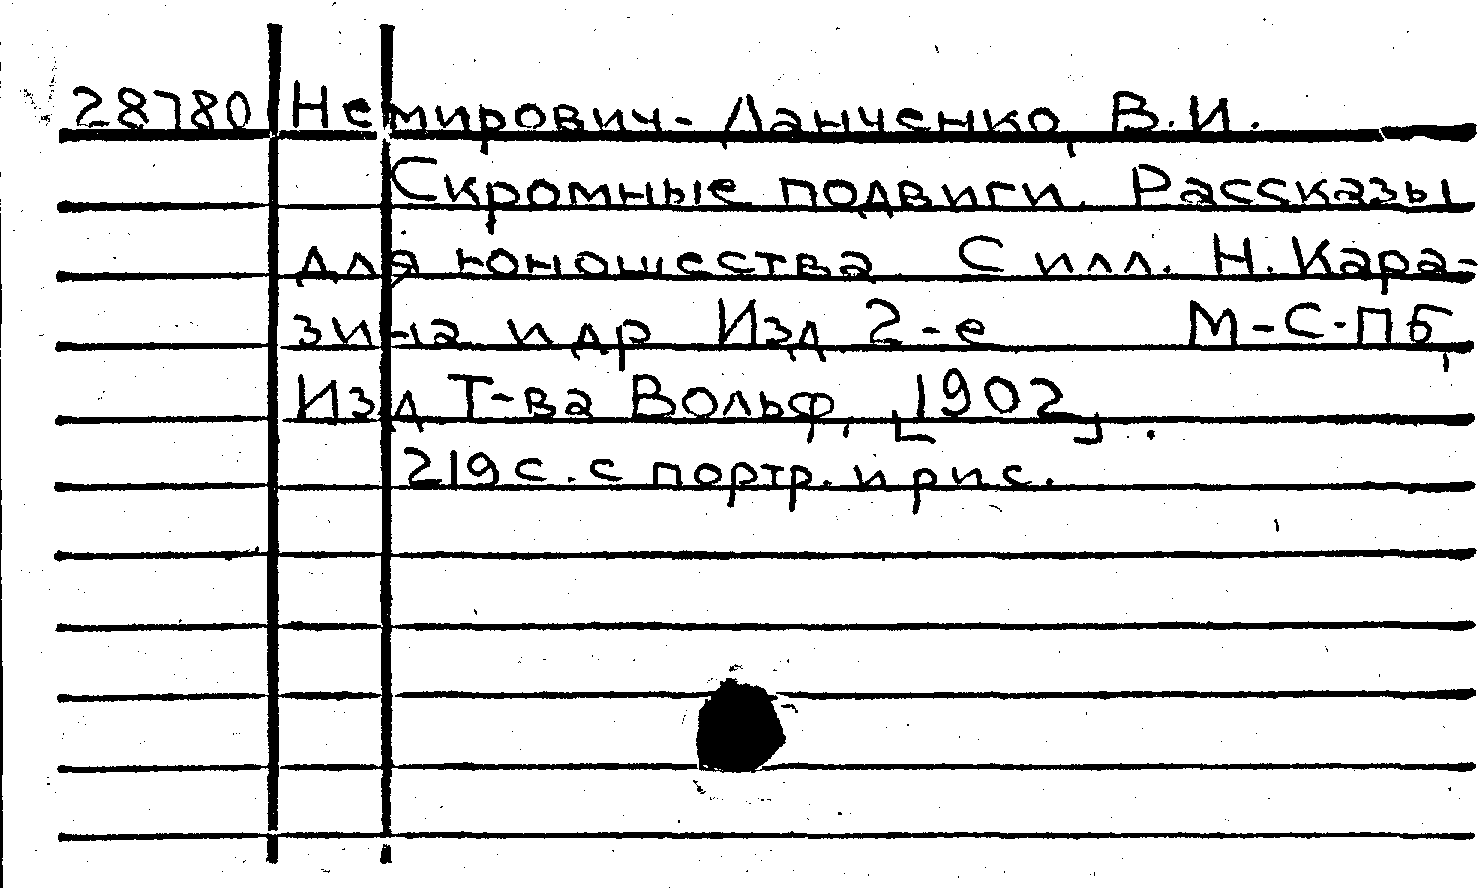 28780 Немирович-Данченко, В.И.
Скромные подвиги. Рассказы
для юношества С илл. Н.Кара-
зина и др Изд 2-е М-С-Пб,
Изд Т-ва Вольф, [1902].
219 с. с портр. и рис.